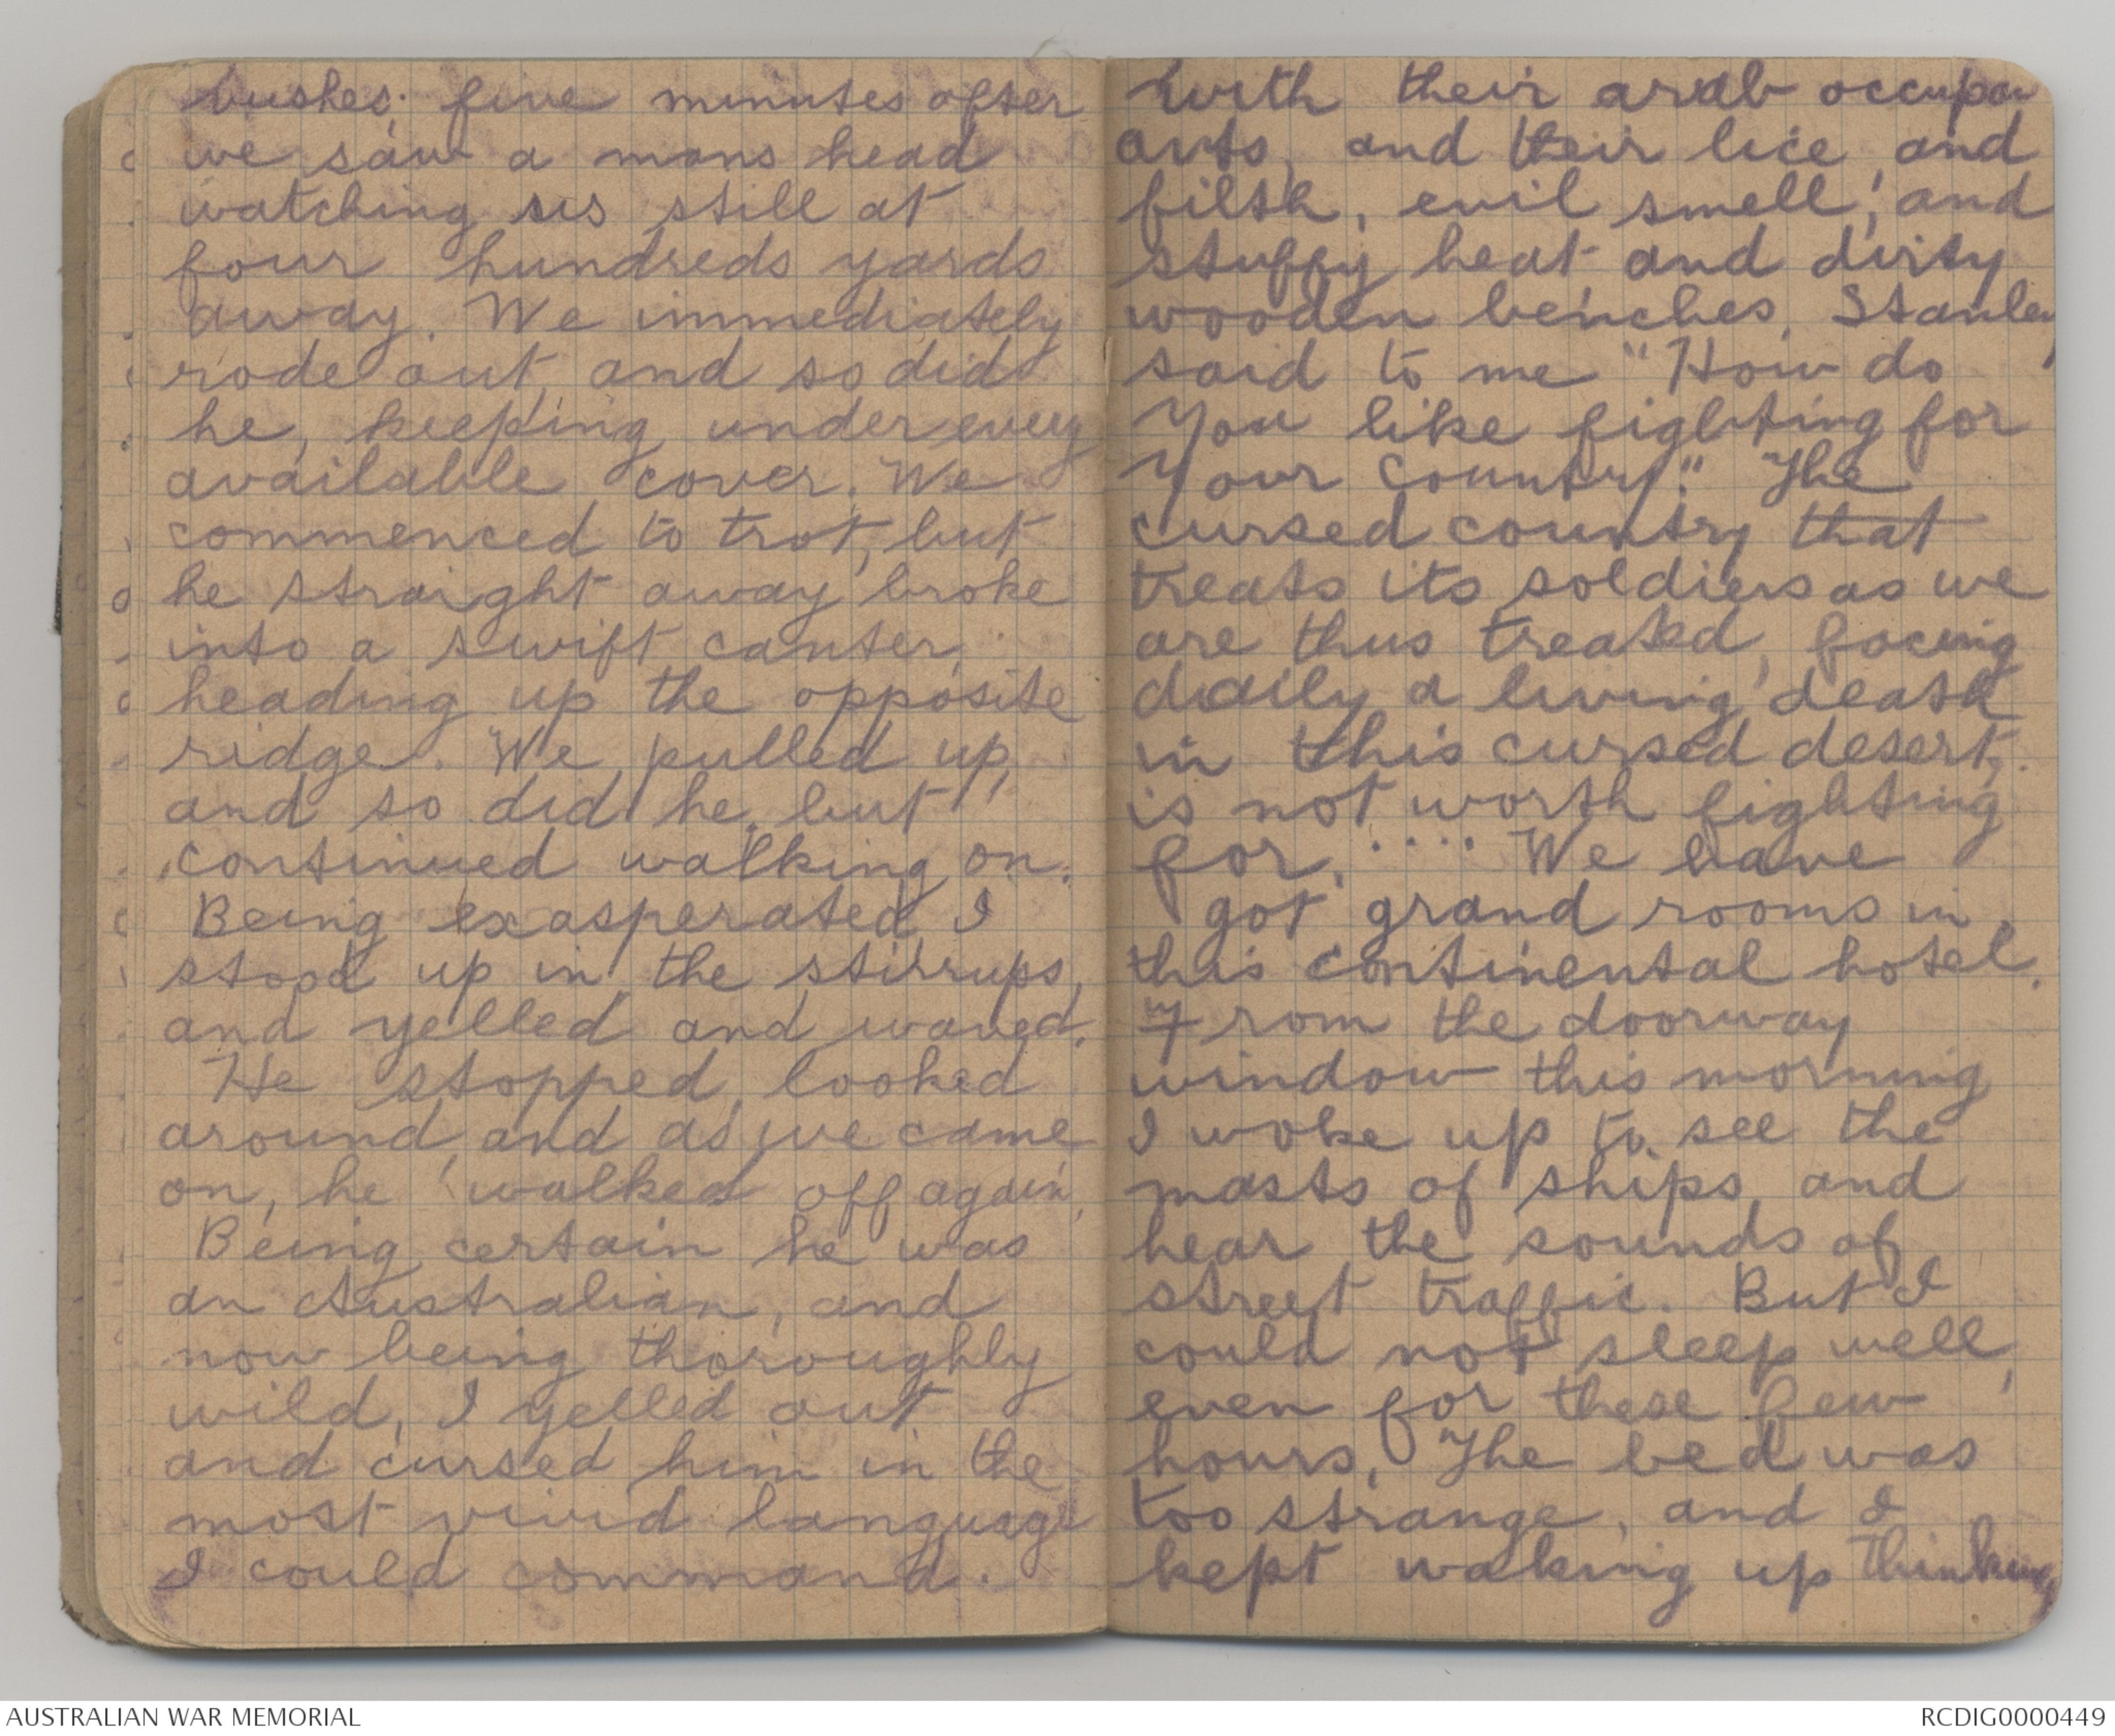 bushes; five minutes after
we saw a mans head
watching us still at
four hundreds yards
away. We immediately
rode out, and so did
he, keeping under every
available cover. We
commenced to trot, but
he straight away broke
into a swift canter,
heading up the opposite
ridge. We pulled up,
and so did he, but
continued walking on.
Being exasperated, I
stood up in the stirrups,
and yelled and waved.
He stopped, looked
around, and as we came
on, he walked off again,
Being certain he was
an Australian, and
now being thoroughly
wild, I yelled out
and cursed him in the
most vivid language
I could command.
with their arab occup
ants, and their lice, and
filth, evil smell, and
stuffy heat and dirty
wooden benches, Stanley
said to me "How do
you like fighting for
your country." The
cursed country that
treats its soldiers as we
are thus treated, facing
daily a living death
in this cursed desert,
is not worth fighting
for. .... We have
got grand rooms in
this continental hotel.
From the doorway
window this morning
I woke up to see the
masts of ships, and
hear the sounds of
street traffic. But I
could not sleep well,
even for these few
hours, The bed was
too strange, and I
kept waking up thinking
AUSTRALIAN WAR MEMORIAL
RCDIG0000449